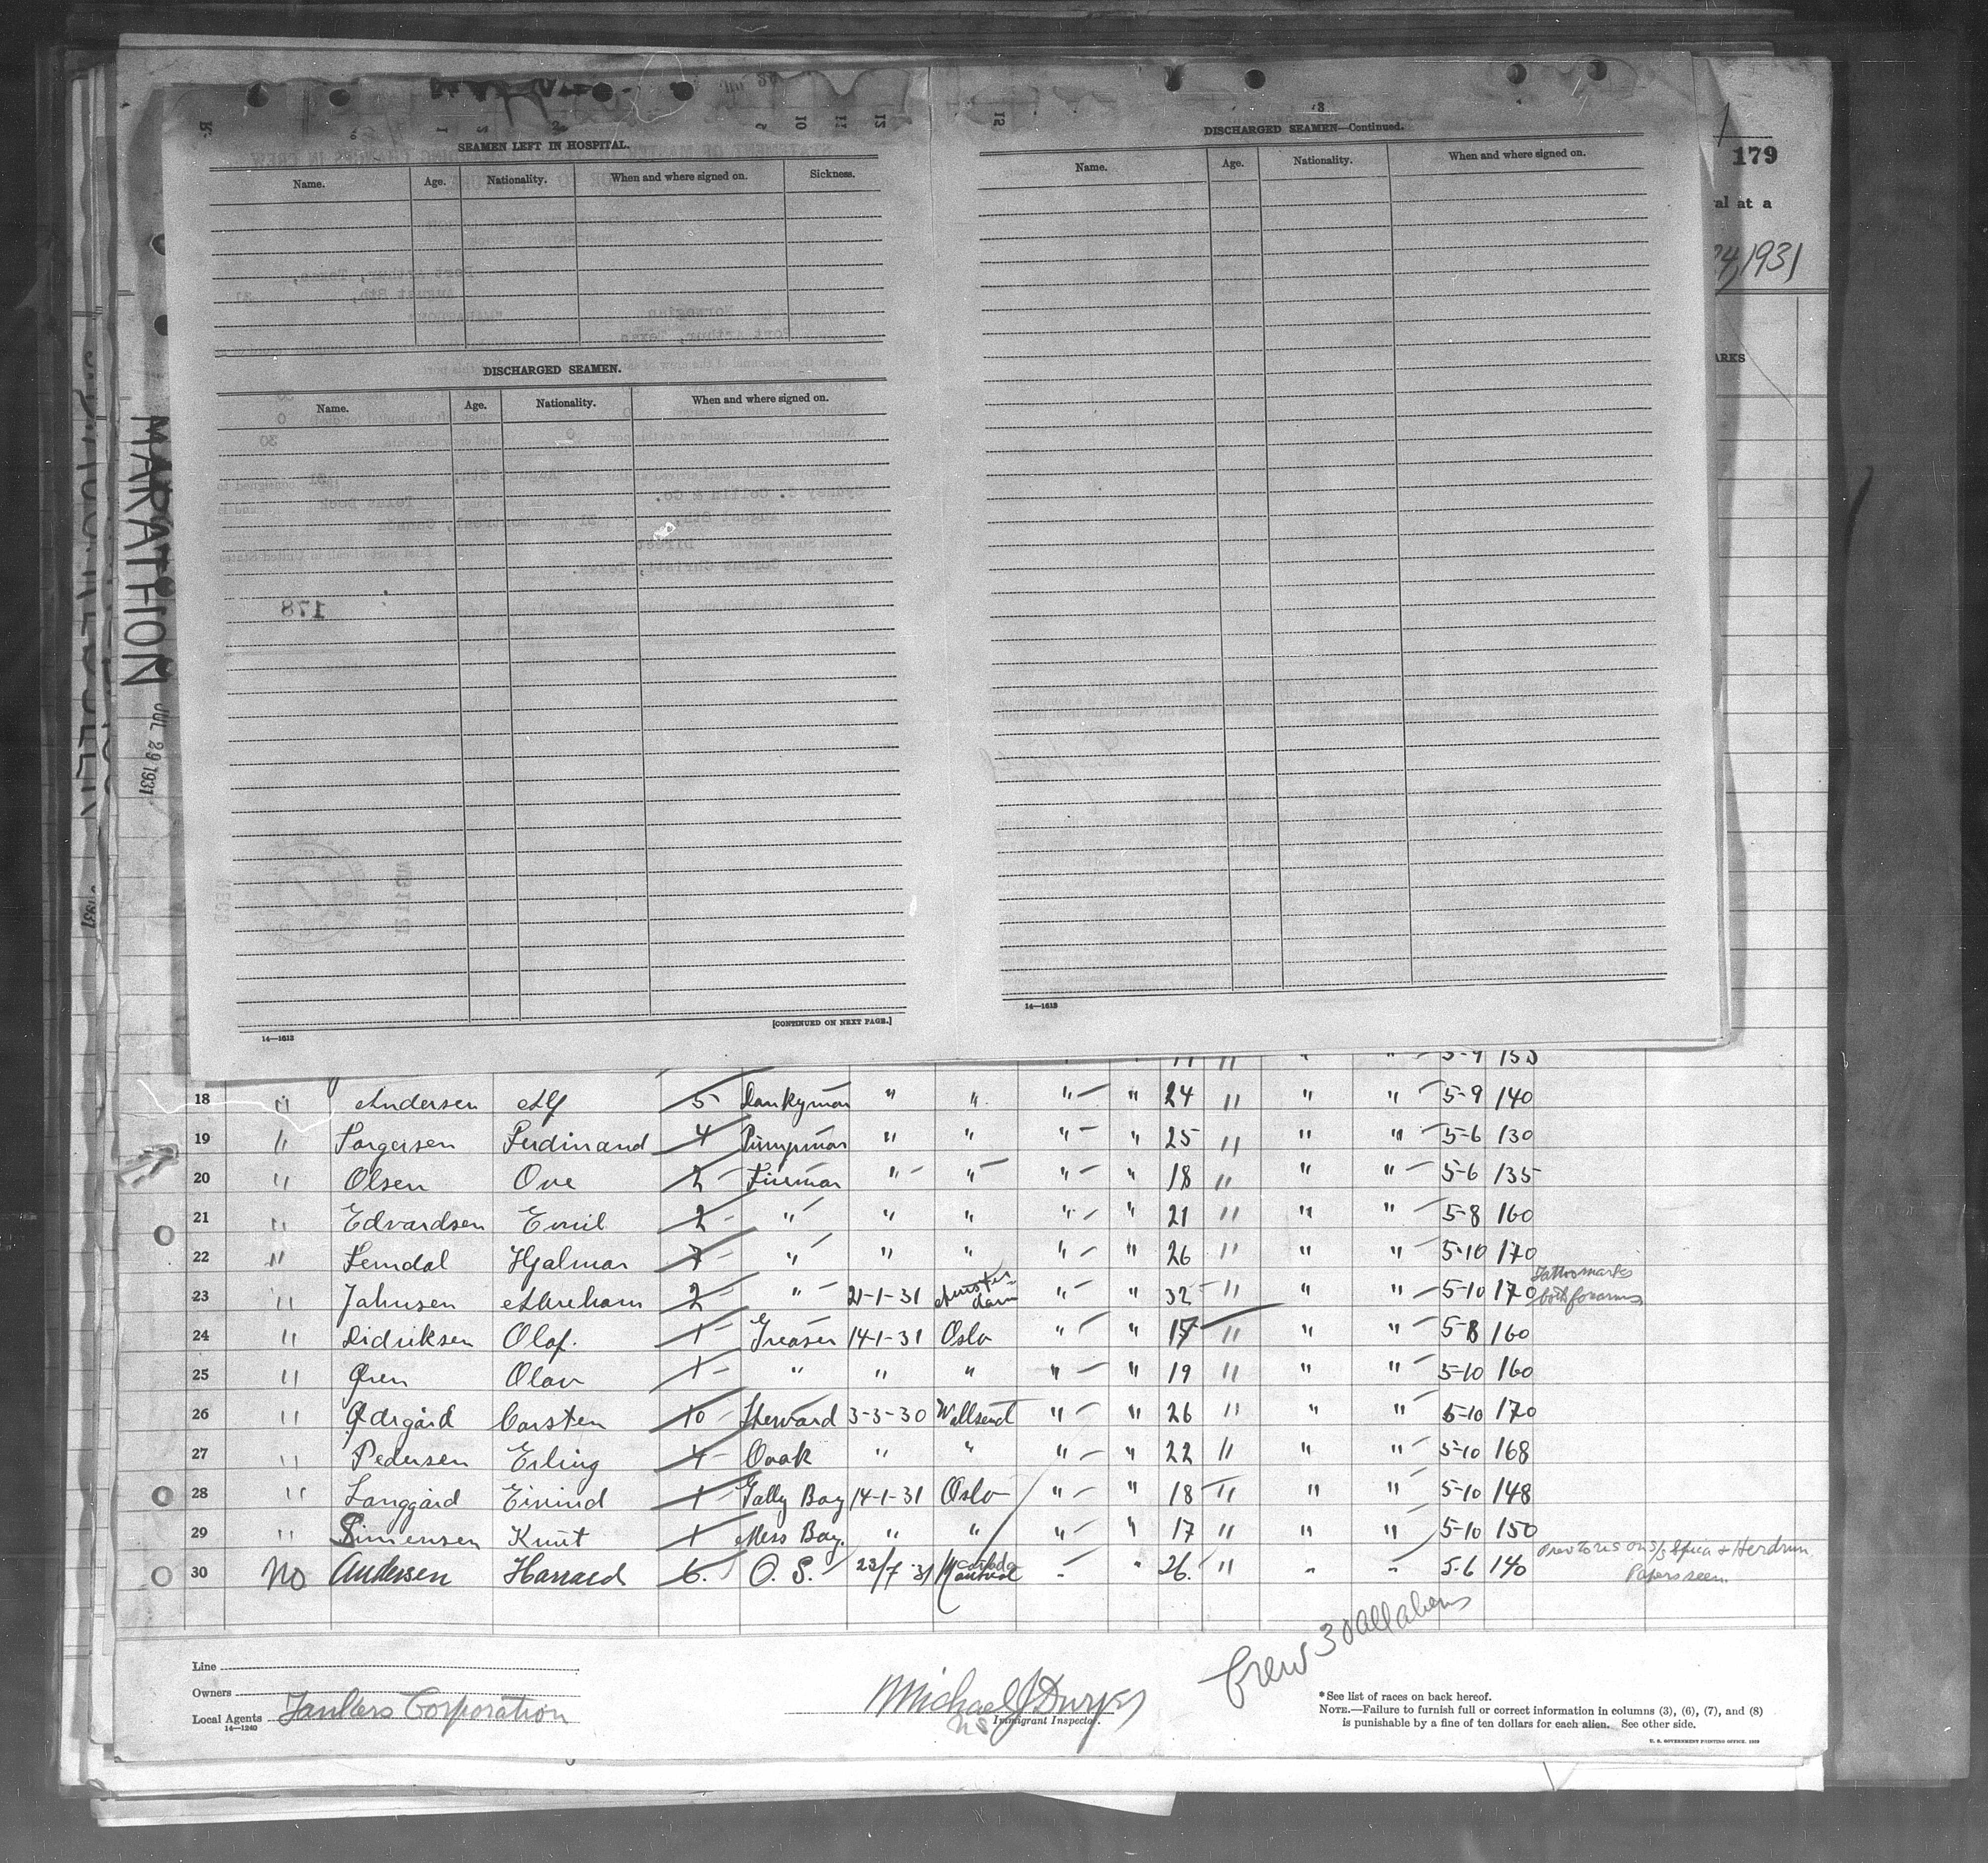 179
val at a
24, 1931
ARKS
MARATHON
JUL 29 1931
SEAMEN LEFT IN HOSPITAL.
Name. Age. Nationality. When and where signed on. Sickness.
DISCHARGED SEAMEN.
Name. Age. Nationality. When and where signed on.
178
14—1613
[CONTINUED ON NEXT PAGE.]
3
DISCHARGED SEAMEN—Continued.
Name. Age. Nationality. When and where signed on.
14—1613
18 " Andersen Alf 5 Donkyman " " " " 24 " " " 5-9 140
19 " Torgersen Ferdinand 4 Pumpman " " " " 25 " " " 5-6 130
20 " Olsen Ove 2 Fireman " " " " 18 " " " 5-6 135
21 " Edvardsen Emil 2 " " " " " 21 " " " 5-8 160
22 " Lerndal Hjalmar 7 " " " " " 26 " " " 5-10 170
23 " Jahnsen Abreham 2 " 21-1-31 Amsterdam " " 32 " " " 5-10 170 Tattoo marks both forearms
24 " Didriksen Olaf. 1 Greaser 14-1-31 Oslo " " 17 " " " 5-8 160
25 " Øren Olav 1 " " " " " 19 " " " 5-10 160
26 " Ødegård Carsten 10 Steward 3-3-30 Wallsend " " 26 " " " 5-10 170
27 " Pedersen Erling 4 Cook " " " " 22 " " " 5-10 168
28 " Langgård Eivind 1 Gally Boy 14-1-31 Oslo " " 18 " " " 5-10 148
29 " Simensen Knut 1 Mess Boy. " " " " 17 " " " 5-10 150
30 No Andersen Harrald 6. O. S. 23/7 31 Montreal Canada " " 26. " " " 5-6 140 Prev to US on S/S Spica & Herdrun Papers seen
Crew 30 all aliens
Line
Owners
Local Agents Tankers Corporation
14—1240
Michael J Duryes
Immigrant Inspector.
*See list of races on back hereof.
NOTE.—Failure to furnish full or correct information in columns (3), (6), (7), and (8)
is punishable by a fine of ten dollars for each alien. See other side.
U. S. GOVERNMENT PRINTING OFFICE. 1929